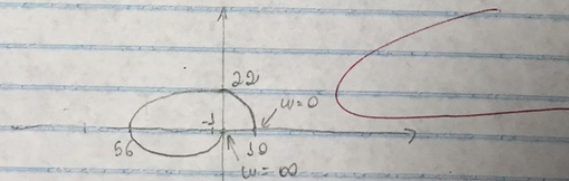 22
w=0
-1
56
10
w=∞